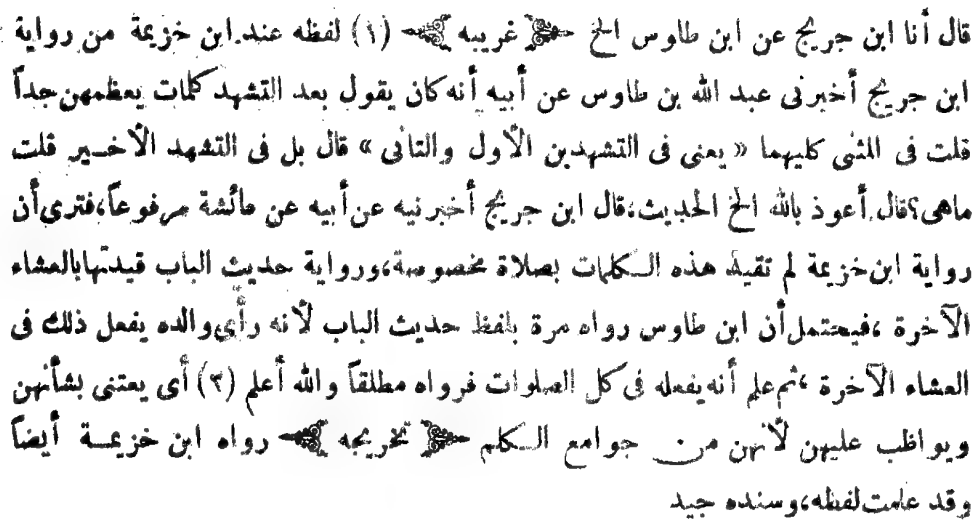 قال أنا ابن جريج عن ابن طاوس الخ ﴿ غريبه ﴾ (١) لفظه عند ابن خزيمة من رواية
ابن جريج أخبرنى عبد الله بن طاوس عن أبيه أنه كان يقول بعد التشهد كلمات يعظمهن جداً
قلت فى المثنى كليهما « يعنى فى التشهدين الأول والثانى » قال بل فى التشهد الأخير قلت
ماهى؟ قال أعوذ بالله الخ الحديث، قال ابن جريج أخبرنيه عن أبيه عن عائشة مرفوعاً، فترى أن
رواية ابن خزيمة لم تقيد هذه الكلمات بصلاة مخصوصة، ورواية حديث الباب قيدتها بالعشاء
الآخرة ، فيحتمل أن ابن طاوس رواه مرة بلفظ حديث الباب لأنه رأى والده يفعل ذلك فى
العشاء الآخرة ، ثم علم أنه يفعله فى كل الصلوات فرواه مطلقاً والله أعلم (٢) أى يعتنى بشأنهن
ويواظب عليهن لأنهن من جوامع الكلم ﴿ تخريجه ﴾ رواه ابن خزيمة أيضاً
وقد علمت لفظه، وسنده جيد